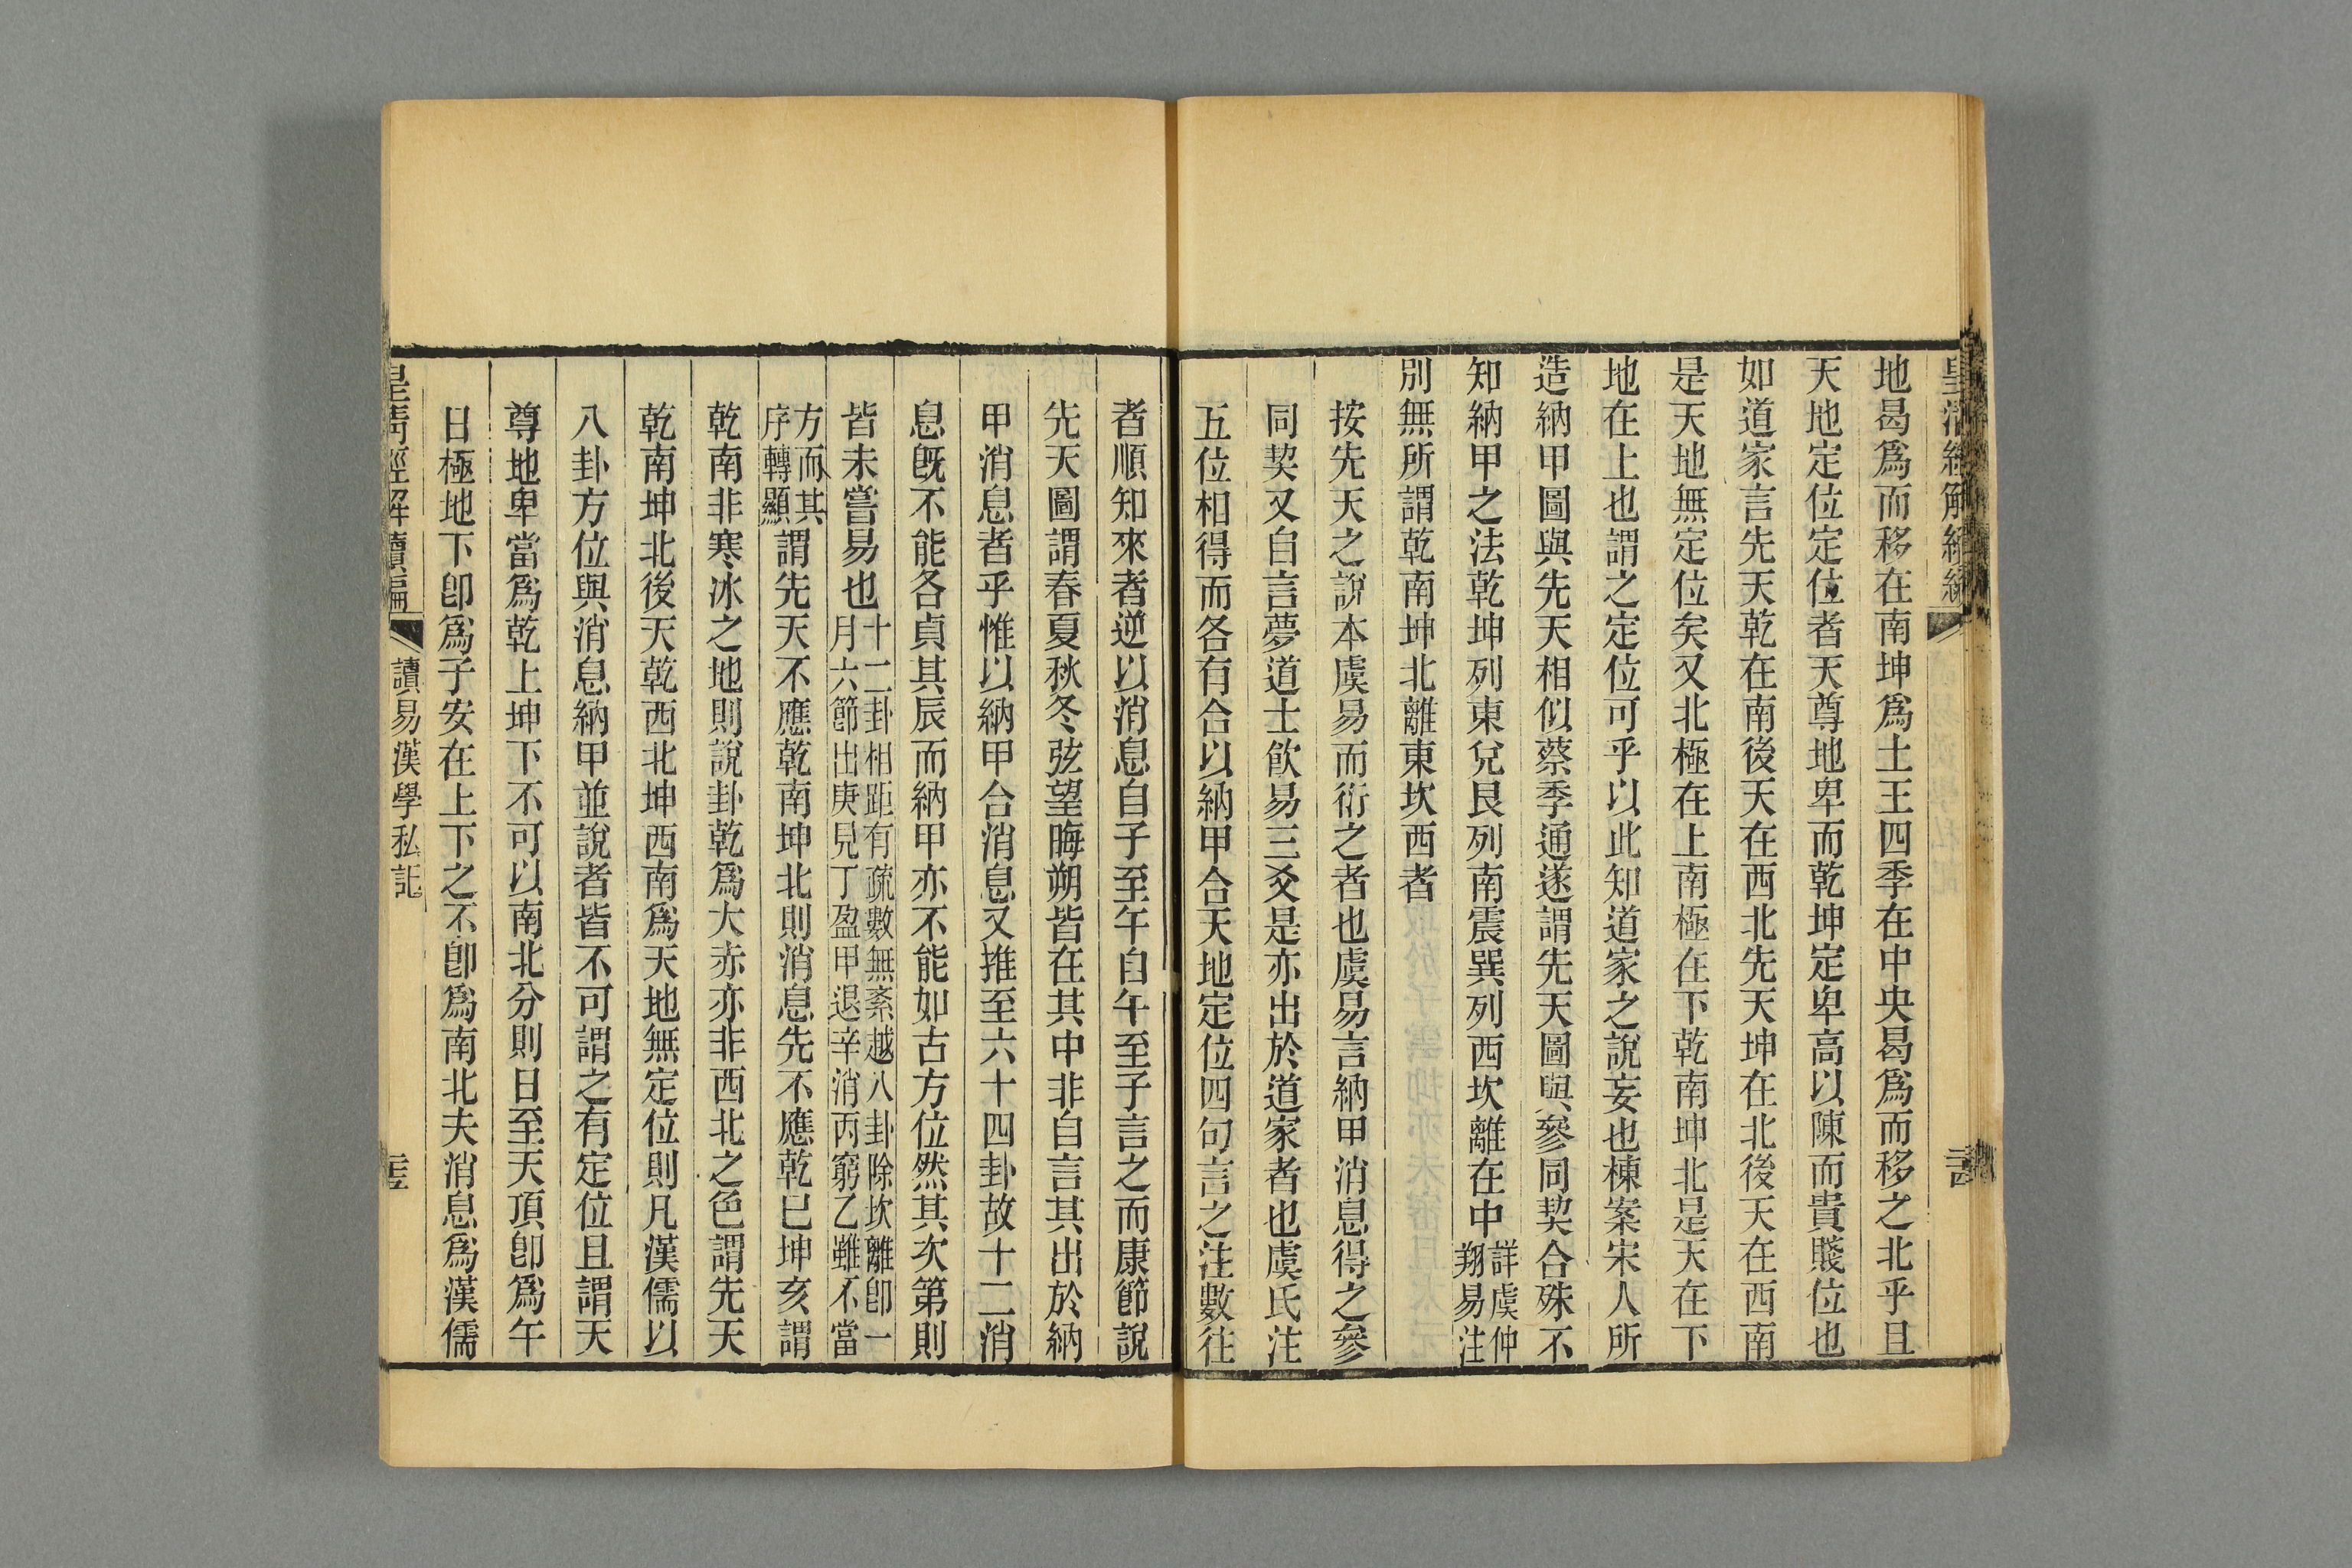 皇清經解續編
地曷爲而移在南坤爲土王四季在中央曷爲而移之北乎且
天地定位定位者天尊地卑而乾坤定卑高以陳而貴賤位也
如道家言先天乾在南後天在西北先天坤在北後天在西南
是天地無定位矣又北極在上南極在下乾南坤北是天在下
地在上也謂之定位可乎以此知道家之說妄也棟案宋人所
造納甲圖與先天相似蔡季通遂謂先天圖與參同契合殊不
知納甲之法乾坤列東兌艮列南震巽列西坎離在中詳虞仲翔易注
別無所謂乾南坤北離東坎西者
按先天之說本虞易而衍之者也虞易言納甲消息得之參
同契又自言夢道士飲易三爻是亦出於道家者也虞氏注
五位相得而各有合以納甲合天地定位四句言之注數往
者順知來者逆以消息自子至午自午至子言之而康節說
先天圖謂春夏秋冬弦望晦朔皆在其中非自言其出於納
甲消息者乎惟以納甲合消息又推至六十四卦故十二消
息旣不能各貞其辰而納甲亦不能如古方位然其次第則
皆未嘗易也十二卦相距有疏數無紊越八卦除坎離卽一月六節出庚見丁盈甲退辛消丙窮乙雖不當
方而其序轉顯謂先天不應乾南坤北則消息先不應乾巳坤亥謂
乾南非寒冰之地則說卦乾爲大赤亦非西北之色謂先天
乾南坤北後天乾西北坤西南爲天地無定位則凡漢儒以
八卦方位與消息納甲並說者皆不可謂之有定位且謂天
尊地卑當爲乾上坤下不可以南北分則日至天頂卽爲午
日極地下卽爲子安在上下之不卽爲南北夫消息爲漢儒
皇清經解續編
讀易漢學私記